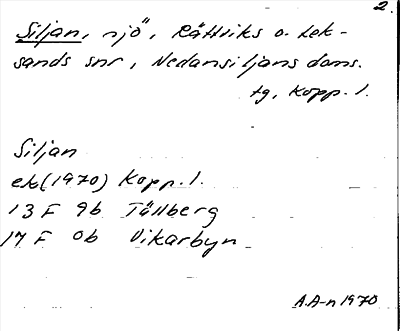 2.
Siljan, sjö, Rättviks o. Lek-
sands snr, Nedansiljans doms.
tg, Kopp. l.
Siljan
ek (1970) Kopp. l.
13 F 9b Tällberg
14 F 0b Vikarbyn
A.A-n 1970